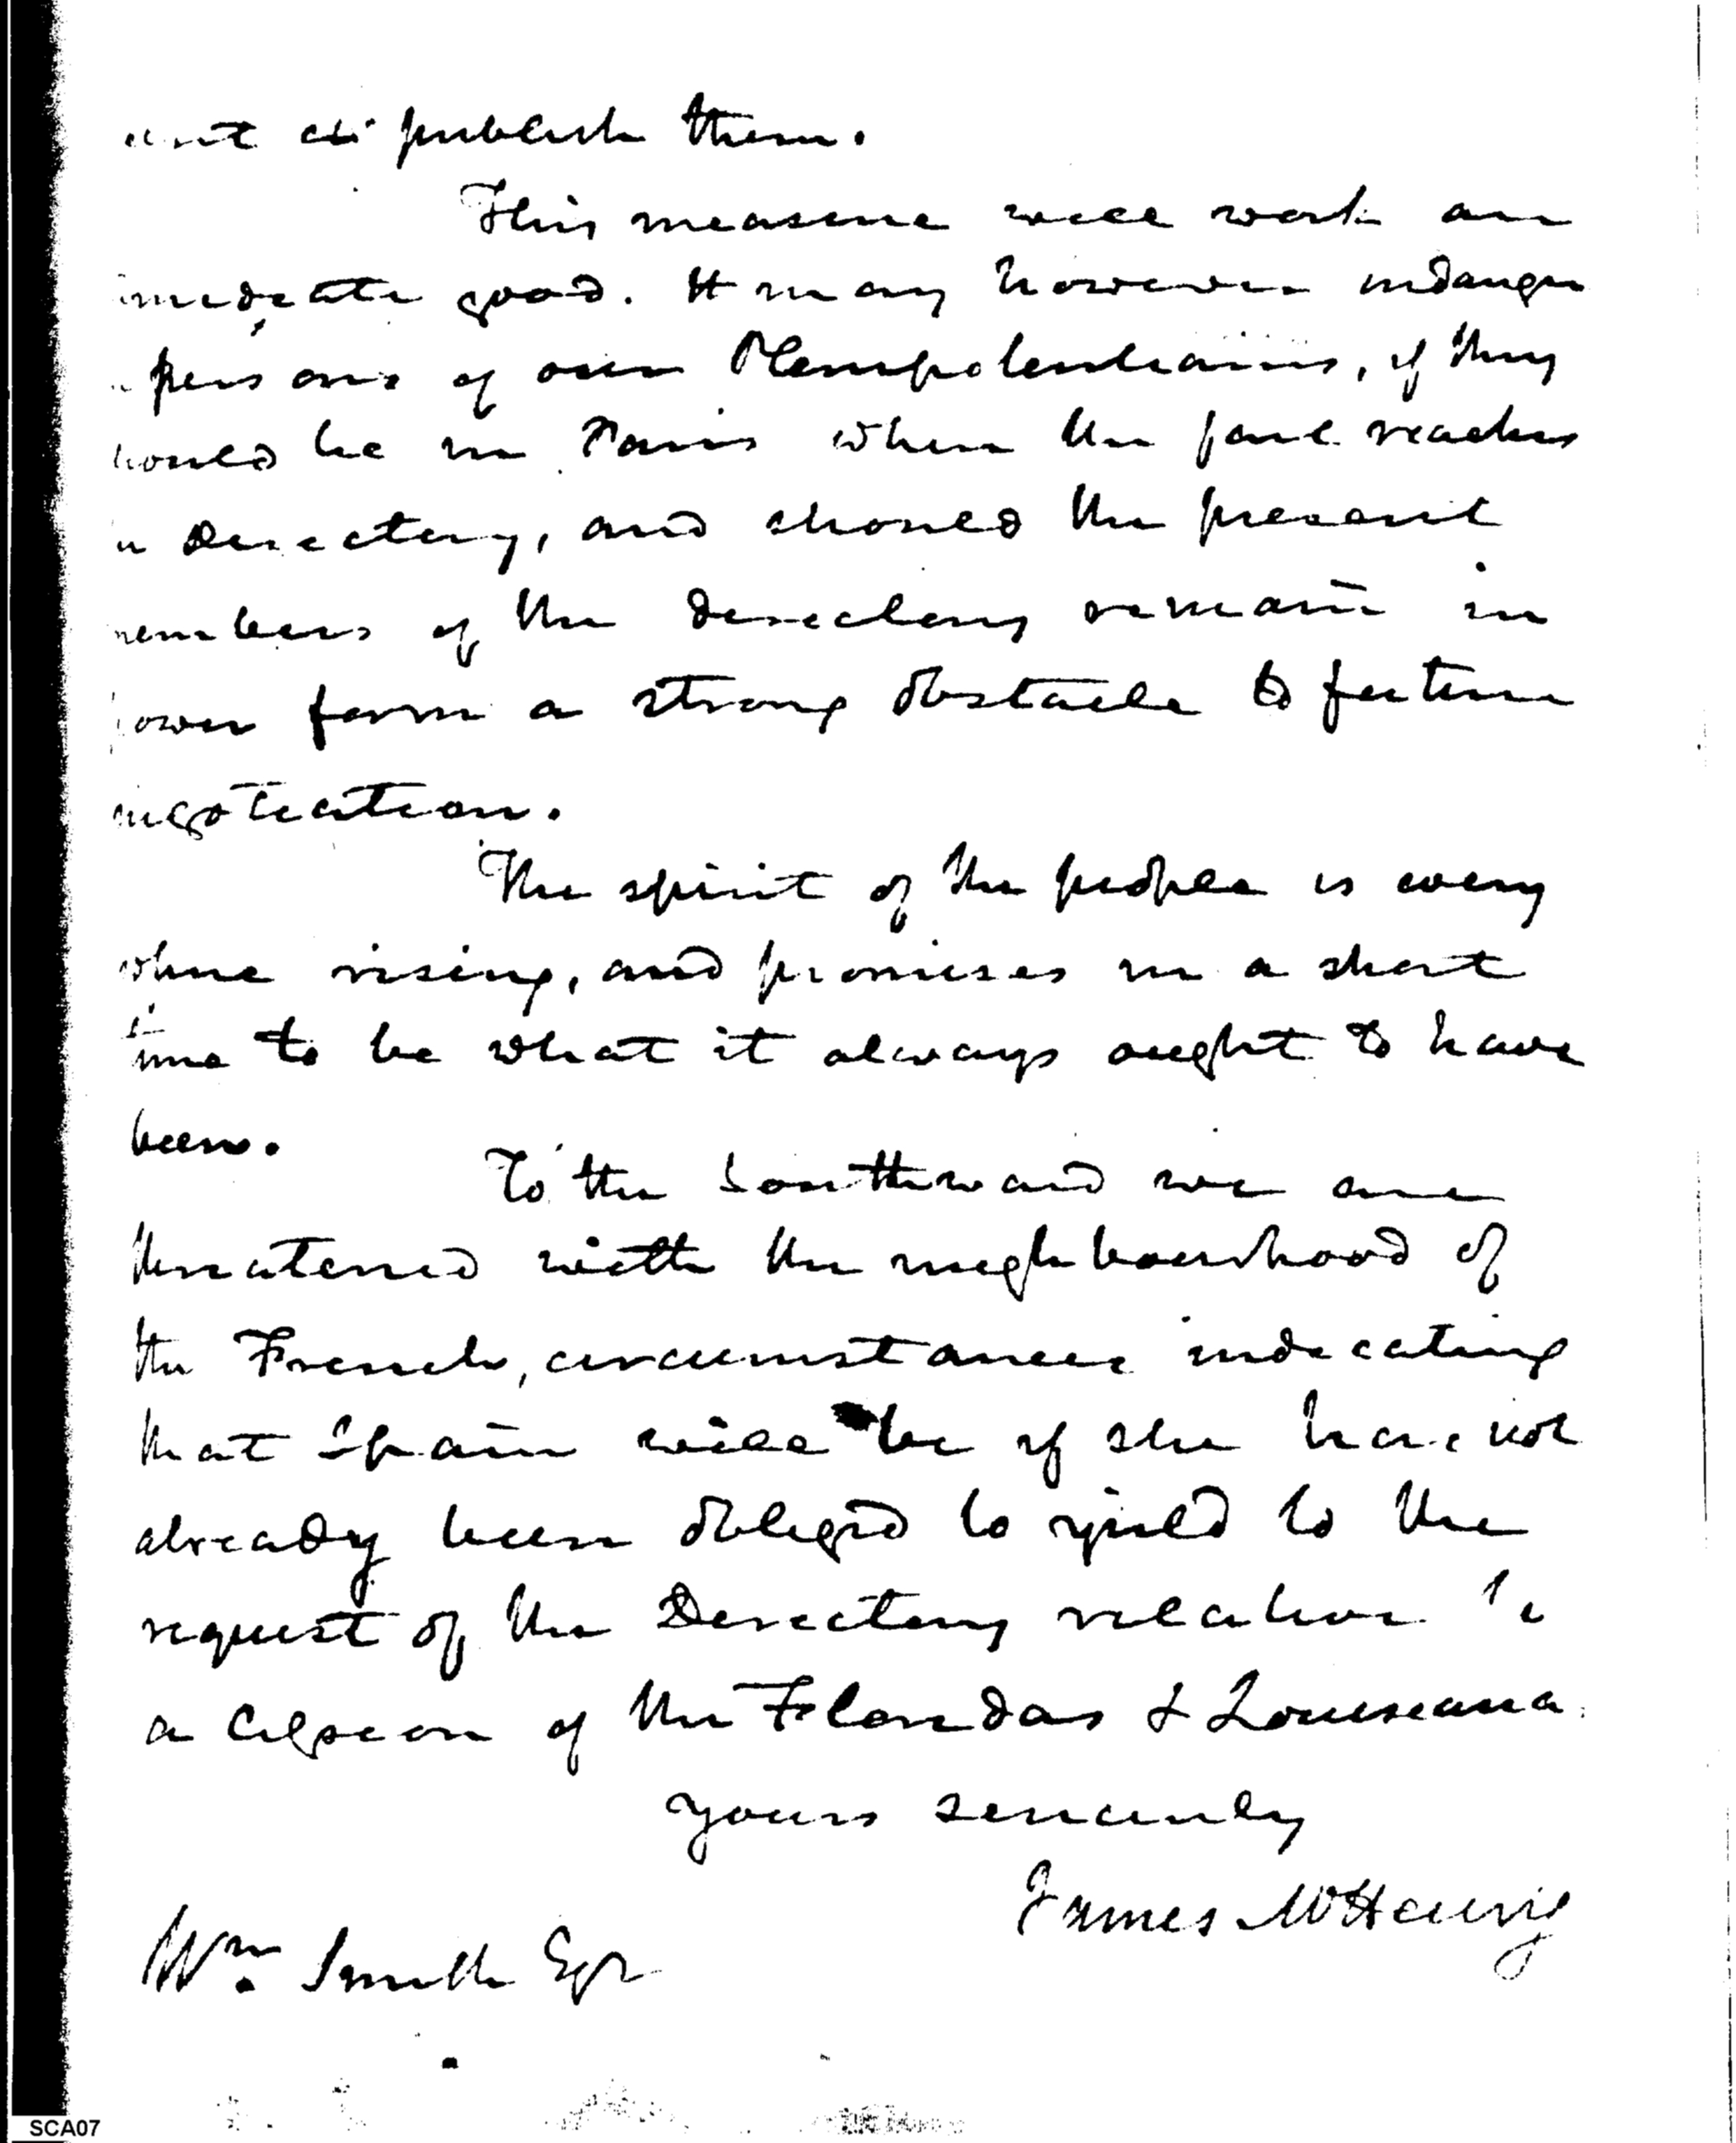 publish them.
This measure will work an
imediate good. It may however indanger
persons of our Plenipotentiaries, if they
should be in Paris when the fact reaches
Directory, and should the present
members of the directory remain in
power form a strong obstacle to future
negotiation.
The spirit of the people is every
where rising, and promises in a short
time to be what it always ought to have
been.
To the Southward we are
threatened with the neighbourhood of
the French, circumstances indicating
that Spain will be if she have not
already been obliged to yield to the
request of the Directory relative to
a cession of the Floridas & Louisiana.
yours sincerely
James McHenry
Wm. Smith Esqr
SCA07